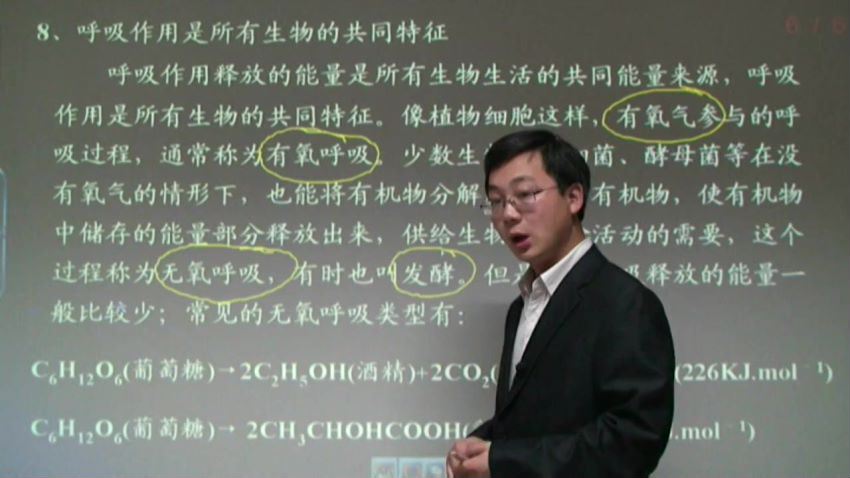 6/6
8、呼吸作用是所有生物的共同特征
呼吸作用释放的能量是所有生物生活的共同能量来源，呼吸
作用是所有生物的共同特征。像植物细胞这样，有氧气参与的呼
吸过程，通常称为有氧呼吸。少数生 菌、酵母菌等在没
有氧气的情形下，也能将有机物分解 有机物，使有机物
中储存的能量部分释放出来，供给生物 活动的需要，这个
过程称为无氧呼吸，有时也叫发酵。但是 吸释放的能量一
般比较少；常见的无氧呼吸类型有：
C₆H₁₂O₆(葡萄糖)→2C₂H₅OH(酒精)+2CO₂( (226KJ.mol⁻¹)
C₆H₁₂O₆(葡萄糖)→ 2CH₃CHOHCOOH( .mol⁻¹)